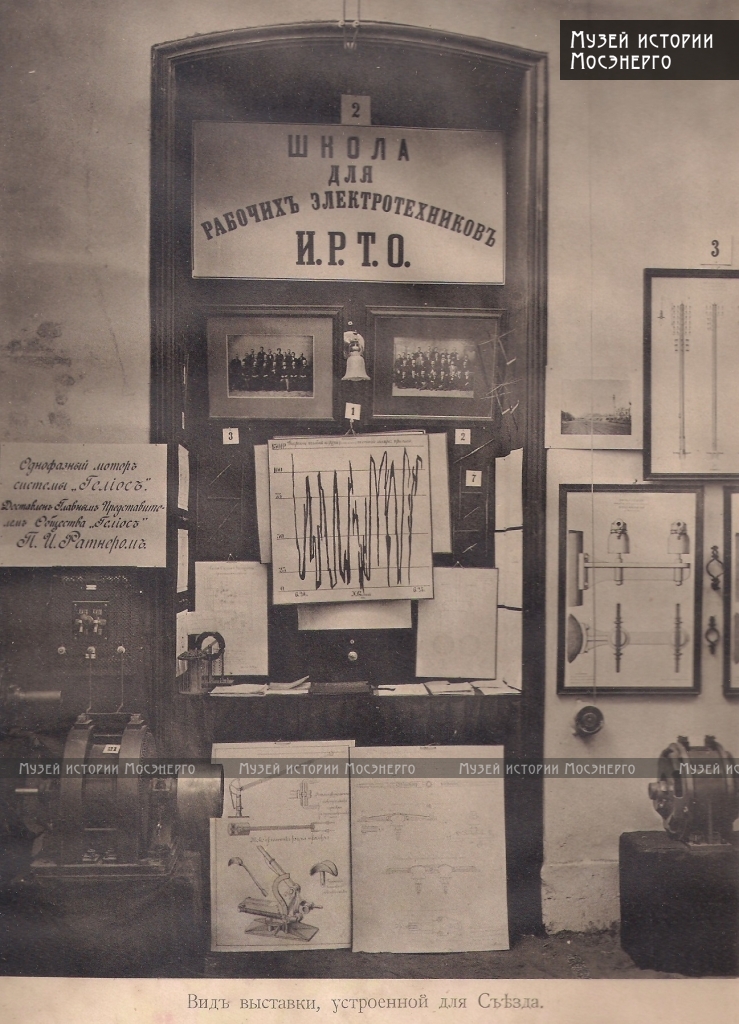 Музей истории
Мосэнерго
2
ШКОЛА
ДЛЯ
РАБОЧИХЪ ЭЛЕКТРОТЕХНИКОВЪ
И.Р.Т.О.
3
1
3
2
7
100
75
50
25
0
Однофазный моторъ
системы „Гелiосъ".
Доставленъ Главнымъ Представите-
лемъ Общества „Гелiосъ"
П. И. Ратнеромъ.
Музей истории Мосэнерго Музей истории Мосэнерго Музей истории Мосэнерго Музей
Видъ выставки, устроенной для Съѣзда.